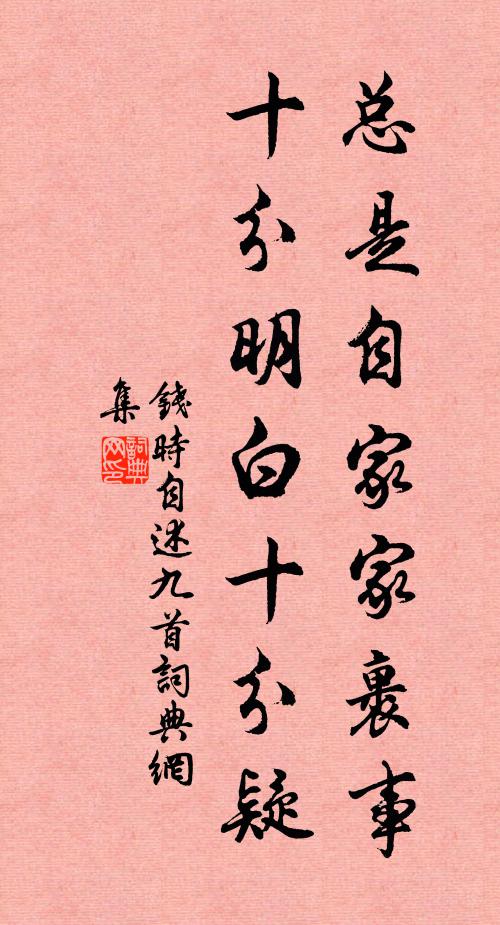 总是自家家裹事
十分明白十分疑
錢時自述九首詞典網
集
詞典网印